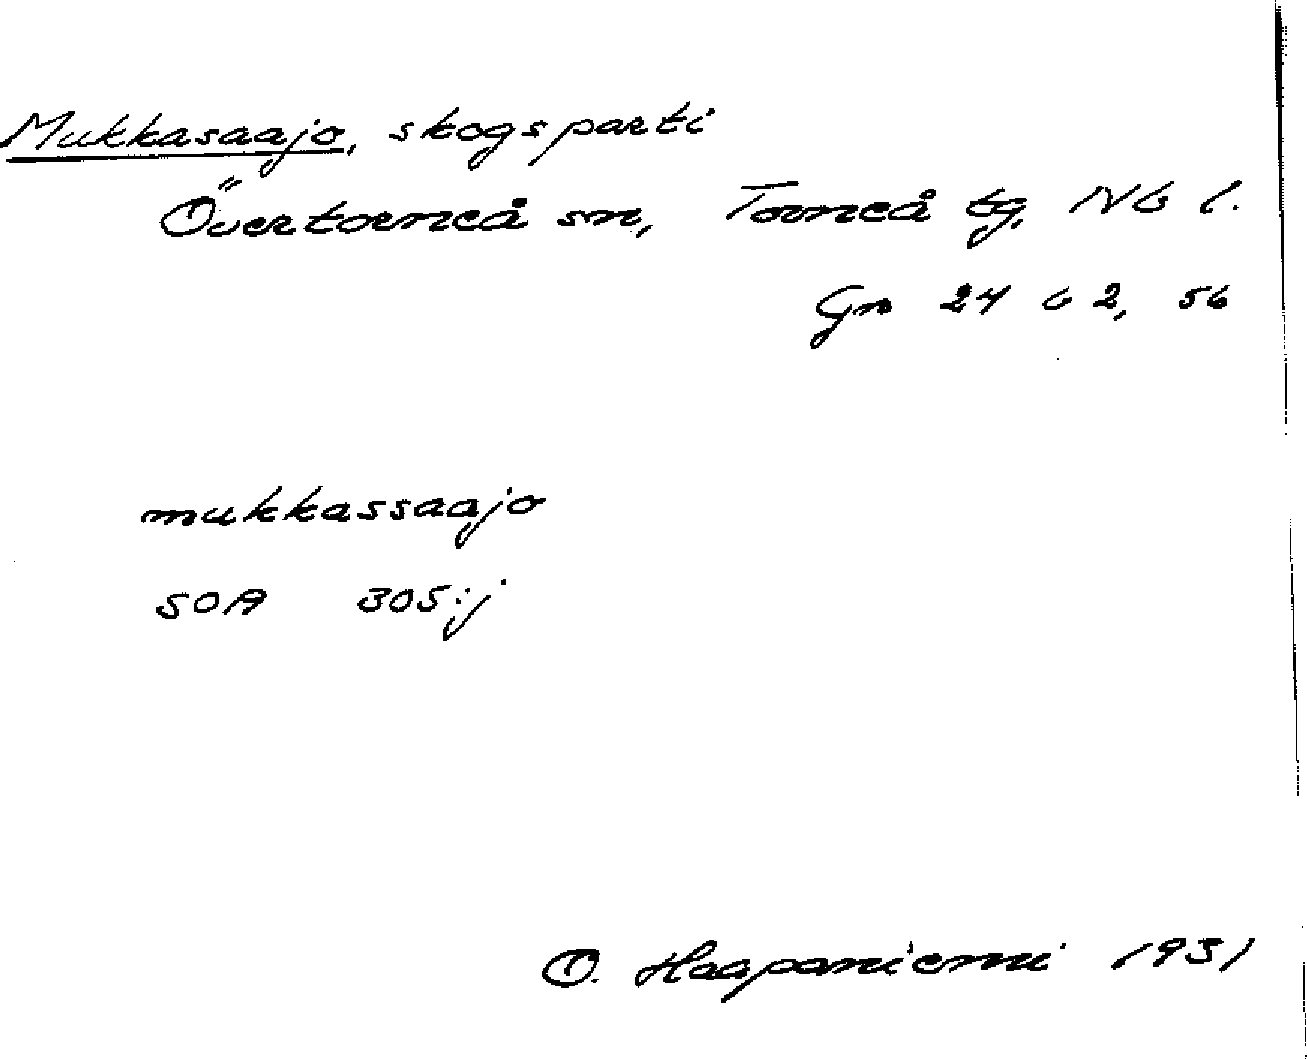 Mukkasaajo, skogsparti
Övertorneå sn, Torneå tg. Nb l.
Gn 24 b 2, 56
mukkassaajo
SOA 305:j
O. Haapaniemi 1931